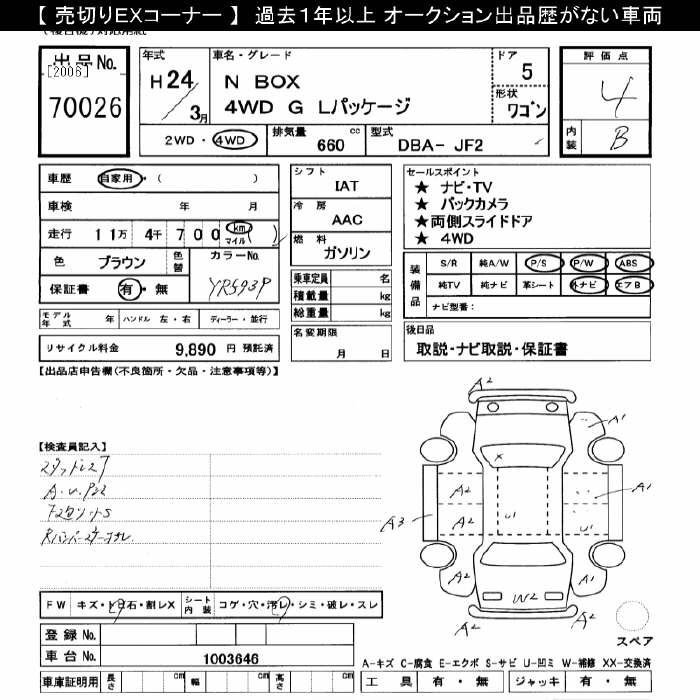 【 売切りEXコーナー 】 過去1年以上 オークション出品歴がない車両
出品No.
[2006]
70026
年式
H24
3月
車名・グレード
N BOX
4WD G Lパッケージ
ドア
5
形状
ワゴン
2WD・4WD
排気量
660
cc
型式
DBA- JF2
評価点
4
内装
B
車歴
自家用・( )
車検
年 月
走行
11万 4千 700
km
マイル
( )
色
ブラウン
色替
カラーNo.
YR593P
保証書
有・無
モデル年式
年
ハンドル 左・右
ディーラー・並行
リサイクル料金
9,890 円 預託済
シフト
IAT
冷房
AAC
燃料
ガソリン
乗車定員
名
積載量
kg
総重量
kg
名変期限
月 日
セールスポイント
★ ナビ・TV
★ バックカメラ
★両側スライドドア
★ 4WD
装備品
S/R 純A/W P/S P/W ABS
純TV 純ナビ 革シート 外ナビ エアB
ナビ型番:
後日品
取説・ナビ取説・保証書
【出品店申告欄(不良箇所・欠品・注意事項等)】
【検査員記入】
スタッドレス
FW
キズ・トビ石・割レX
シート内装
コゲ・穴・汚レ・シミ・破レ・スレ
登録No.
車台No.
1003646
車庫証明用
長さ
cm
幅
cm
高さ
cm
A2
A1
A2
A1
A3
A2
U1
U1
A2
A1
W2
A2
スペア
A-キズ C-腐食 E-エクボ S-サビ U-凹ミ W-補修 XX-交換済
工具
有・無
ジャッキ
有・無